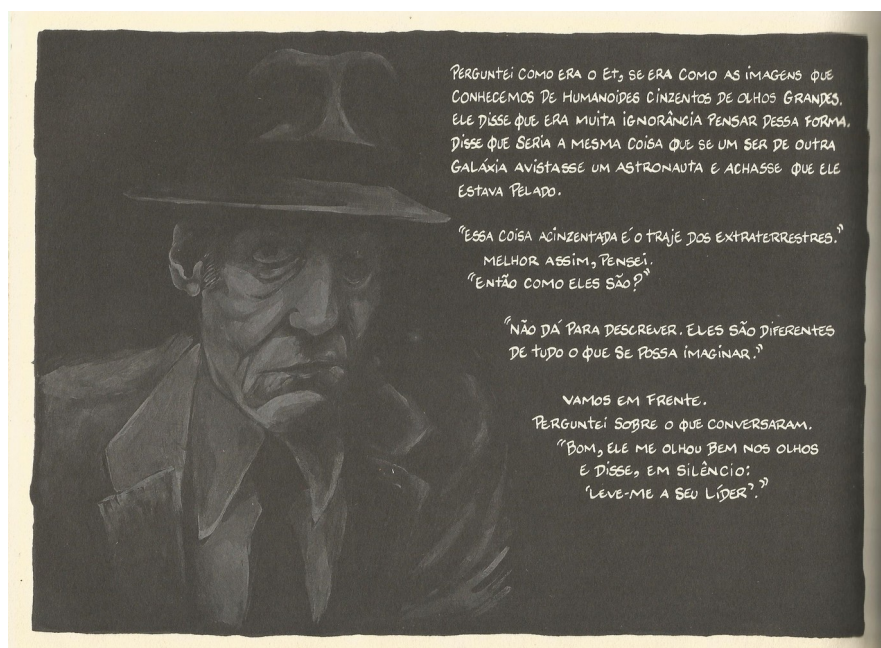 PERGUNTEI COMO ERA O ET, SE ERA COMO AS IMAGENS QUE
CONHECEMOS DE HUMANOIDES CINZENTOS DE OLHOS GRANDES.
ELE DISSE QUE ERA MUITA IGNORÂNCIA PENSAR DESSA FORMA.
DISSE QUE SERIA A MESMA COISA QUE SE UM SER DE OUTRA
GALÁXIA AVISTASSE UM ASTRONAUTA E ACHASSE QUE ELE
ESTAVA PELADO.
"ESSA COISA ACINZENTADA É O TRAJE DOS EXTRATERRESTRES."
MELHOR ASSIM, PENSEI.
"ENTÃO COMO ELES SÃO?"
"NÃO DÁ PARA DESCREVER. ELES SÃO DIFERENTES
DE TUDO O QUE SE POSSA IMAGINAR."
VAMOS EM FRENTE.
PERGUNTEI SOBRE O QUE CONVERSARAM.
"BOM, ELE ME OLHOU BEM NOS OLHOS
E DISSE, EM SILÊNCIO:
'LEVE-ME A SEU LÍDER'."